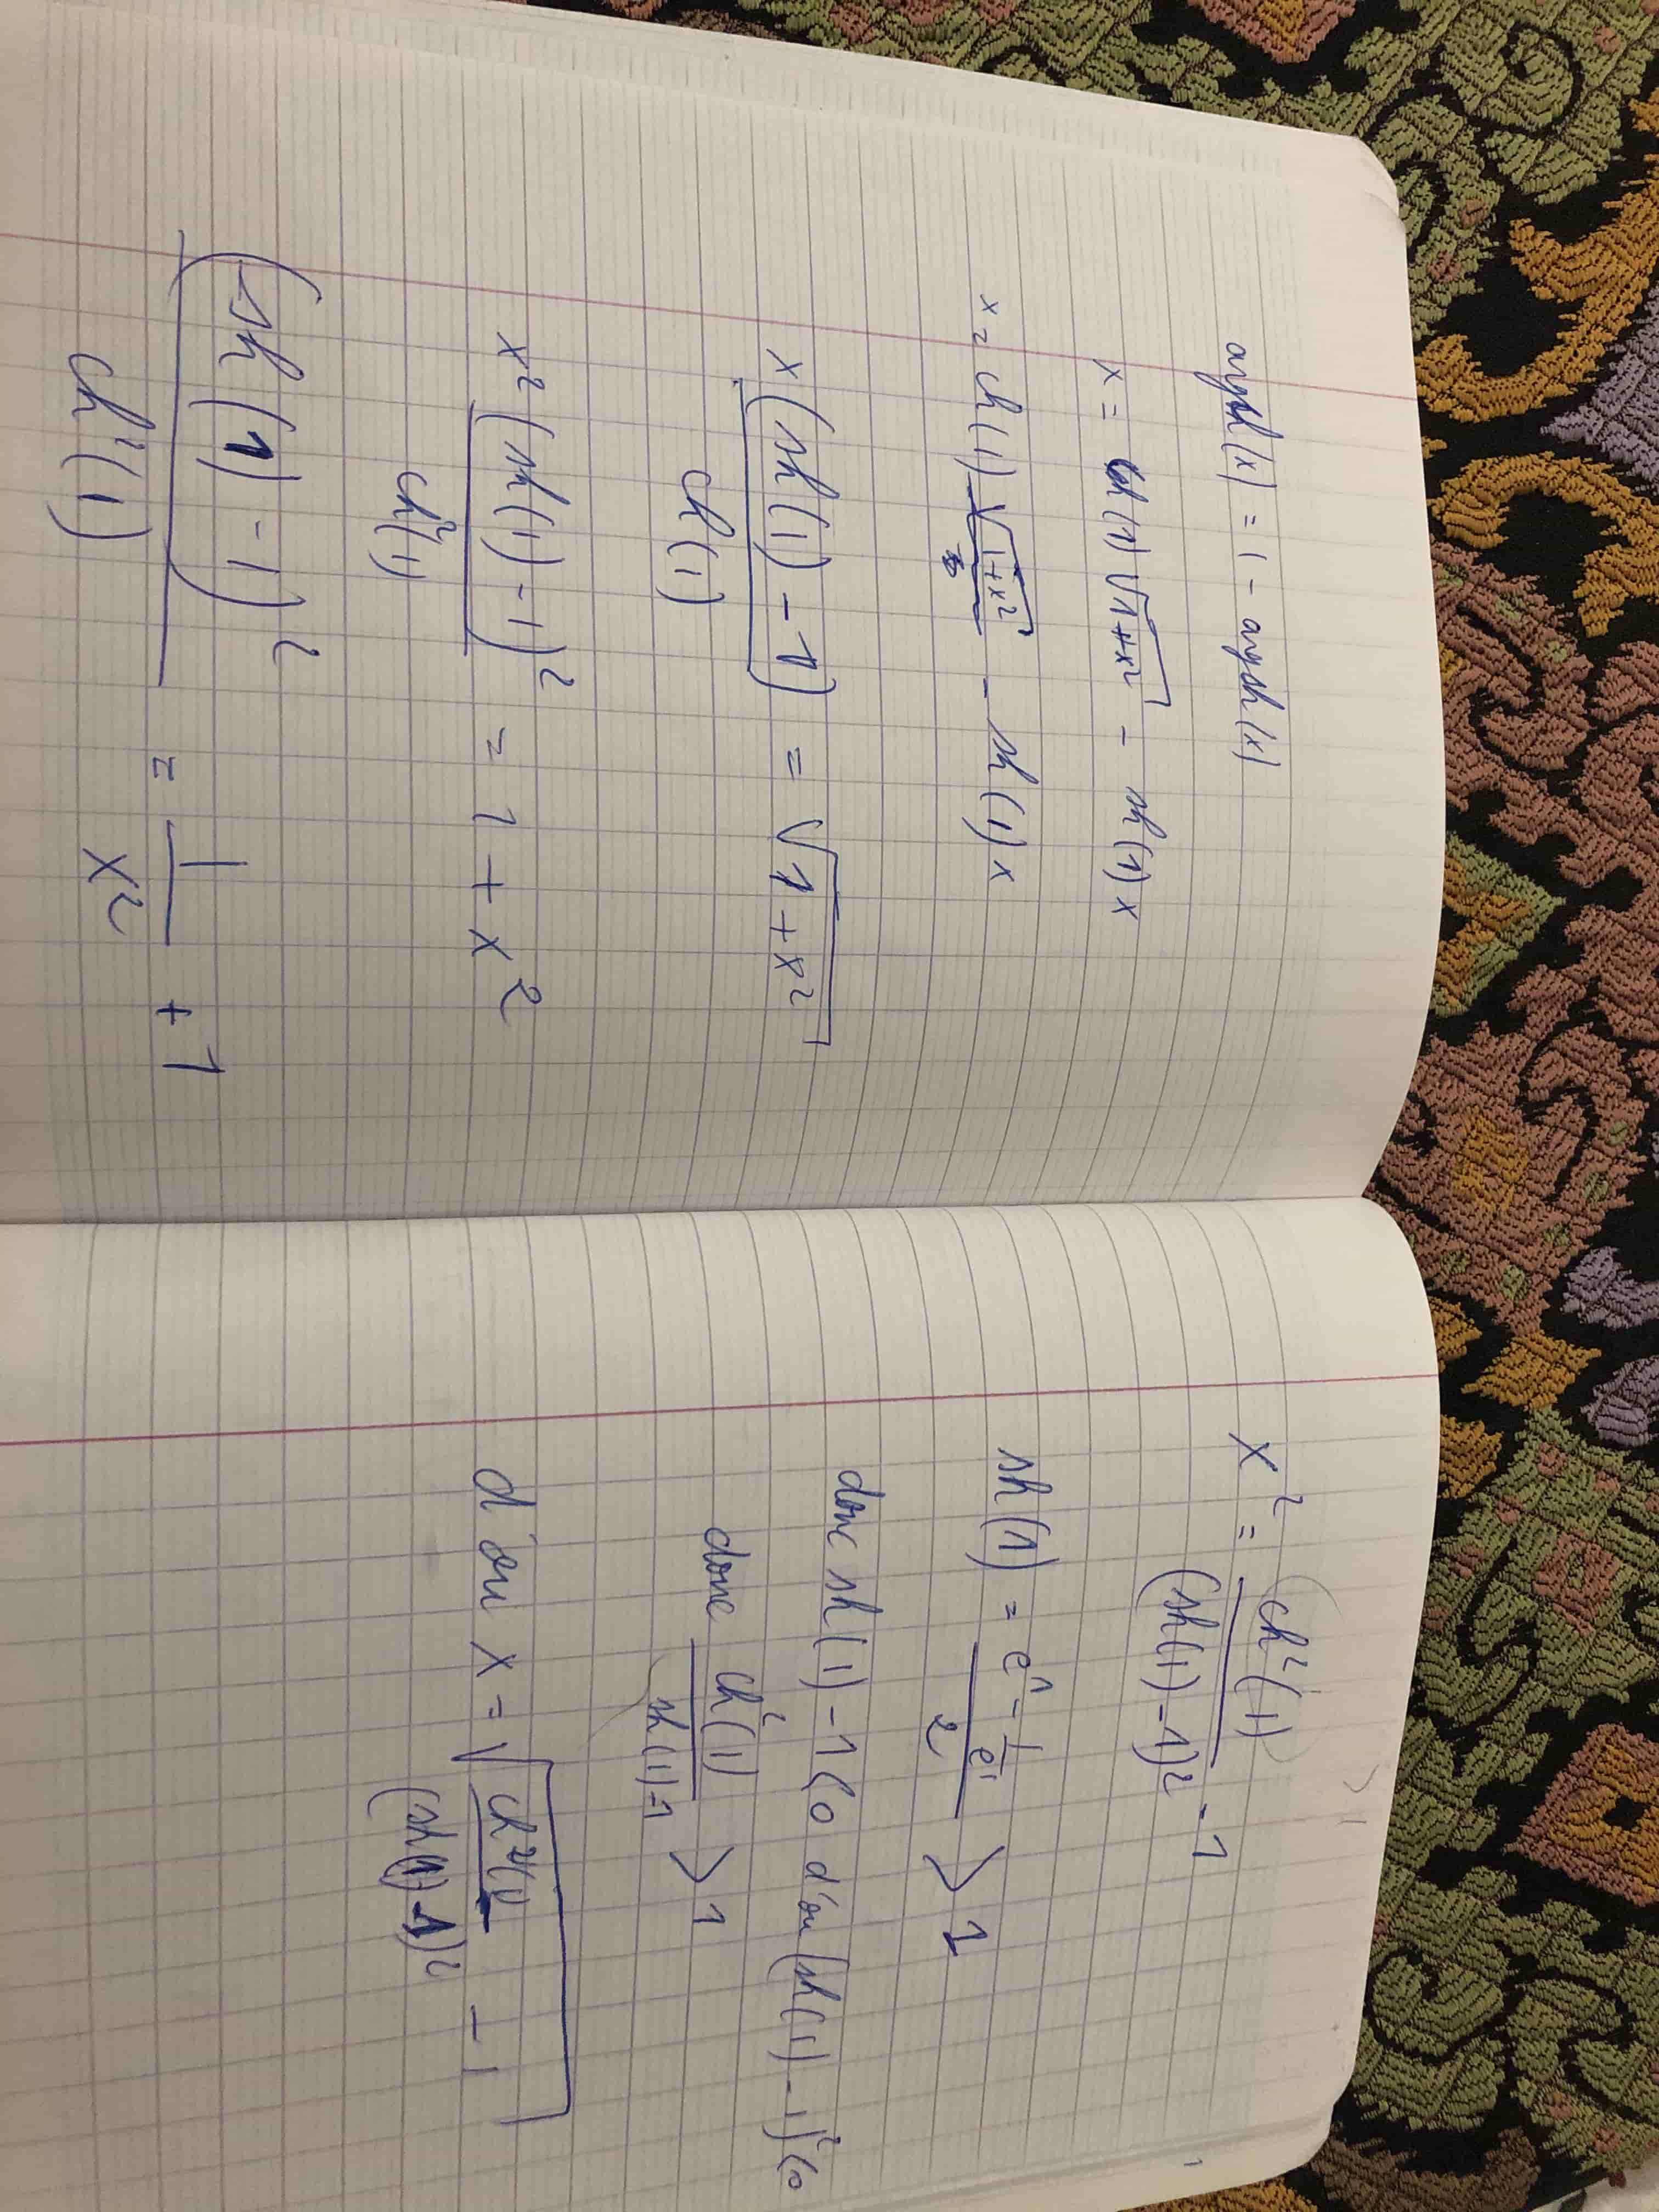 argsh(x) = 1 - argsh(x)
x = ch(1) √1+x² - sh(1)x
x = ch(1) √1+x² - sh(1)x
x (sh(1) - 1) / ch(1) = √1+x²
x² (sh(1) - 1)² / ch²(1) = 1 + x²
(sh(1) - 1)² / ch²(1) = 1/x² + 1
x² = ch²(1) / (sh(1)-1)² - 1
sh(1) = (e¹ - 1/e¹) / 2 > 1
donc sh(1) - 1 < 0 d'ou (sh(1) - 1)² < 0
donc ch²(1) / sh(1)-1 > 1
d'ou x = √ch²(1) / (sh(1)-1)² - 1